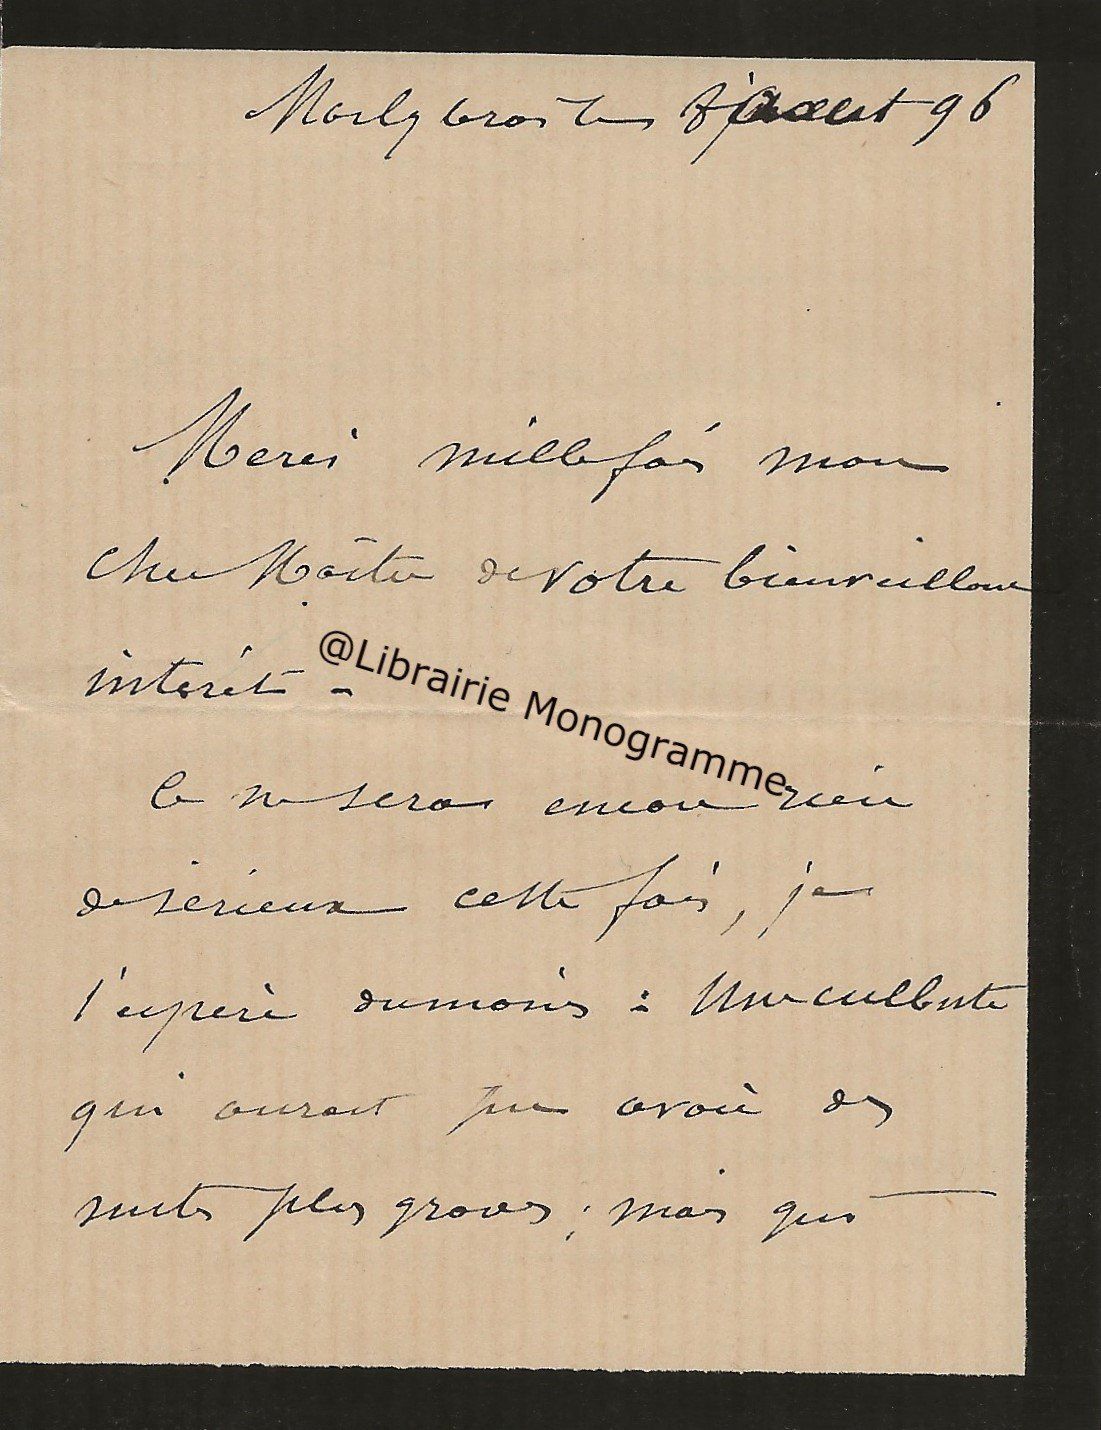 Marly 8 août 96
Merci mille fois mon
cher Maître de votre bienveillant
intérêt -
@Librairie Monogramme
Ce ne sera encore rien
de sérieux cette fois, je
l'espère du moins : Une culbute
qui aurait pu avoir des
suites plus graves ; mais qui